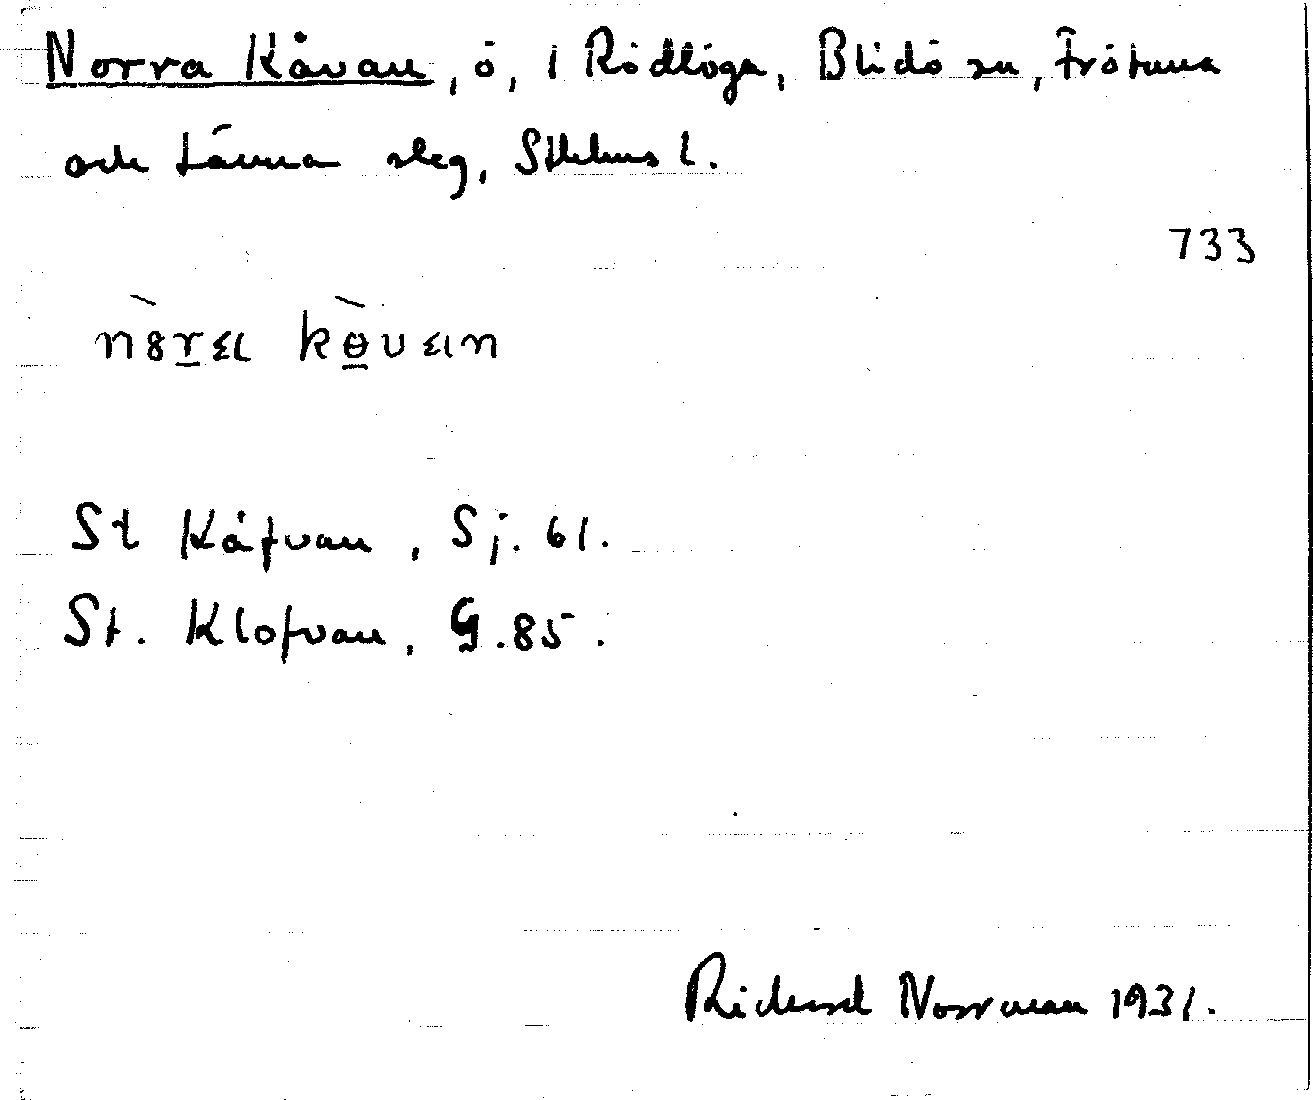 Norra Kåvan, ö, i Rödlöga, Blidö sn, Frötuna
och Länna slg, Sthlms l.
733
n8rɛɩ kөvɛɩn
St Kåfvan, Sj. 61.
St. Klofvan, G. 85.
Rickard Norrman 1931.